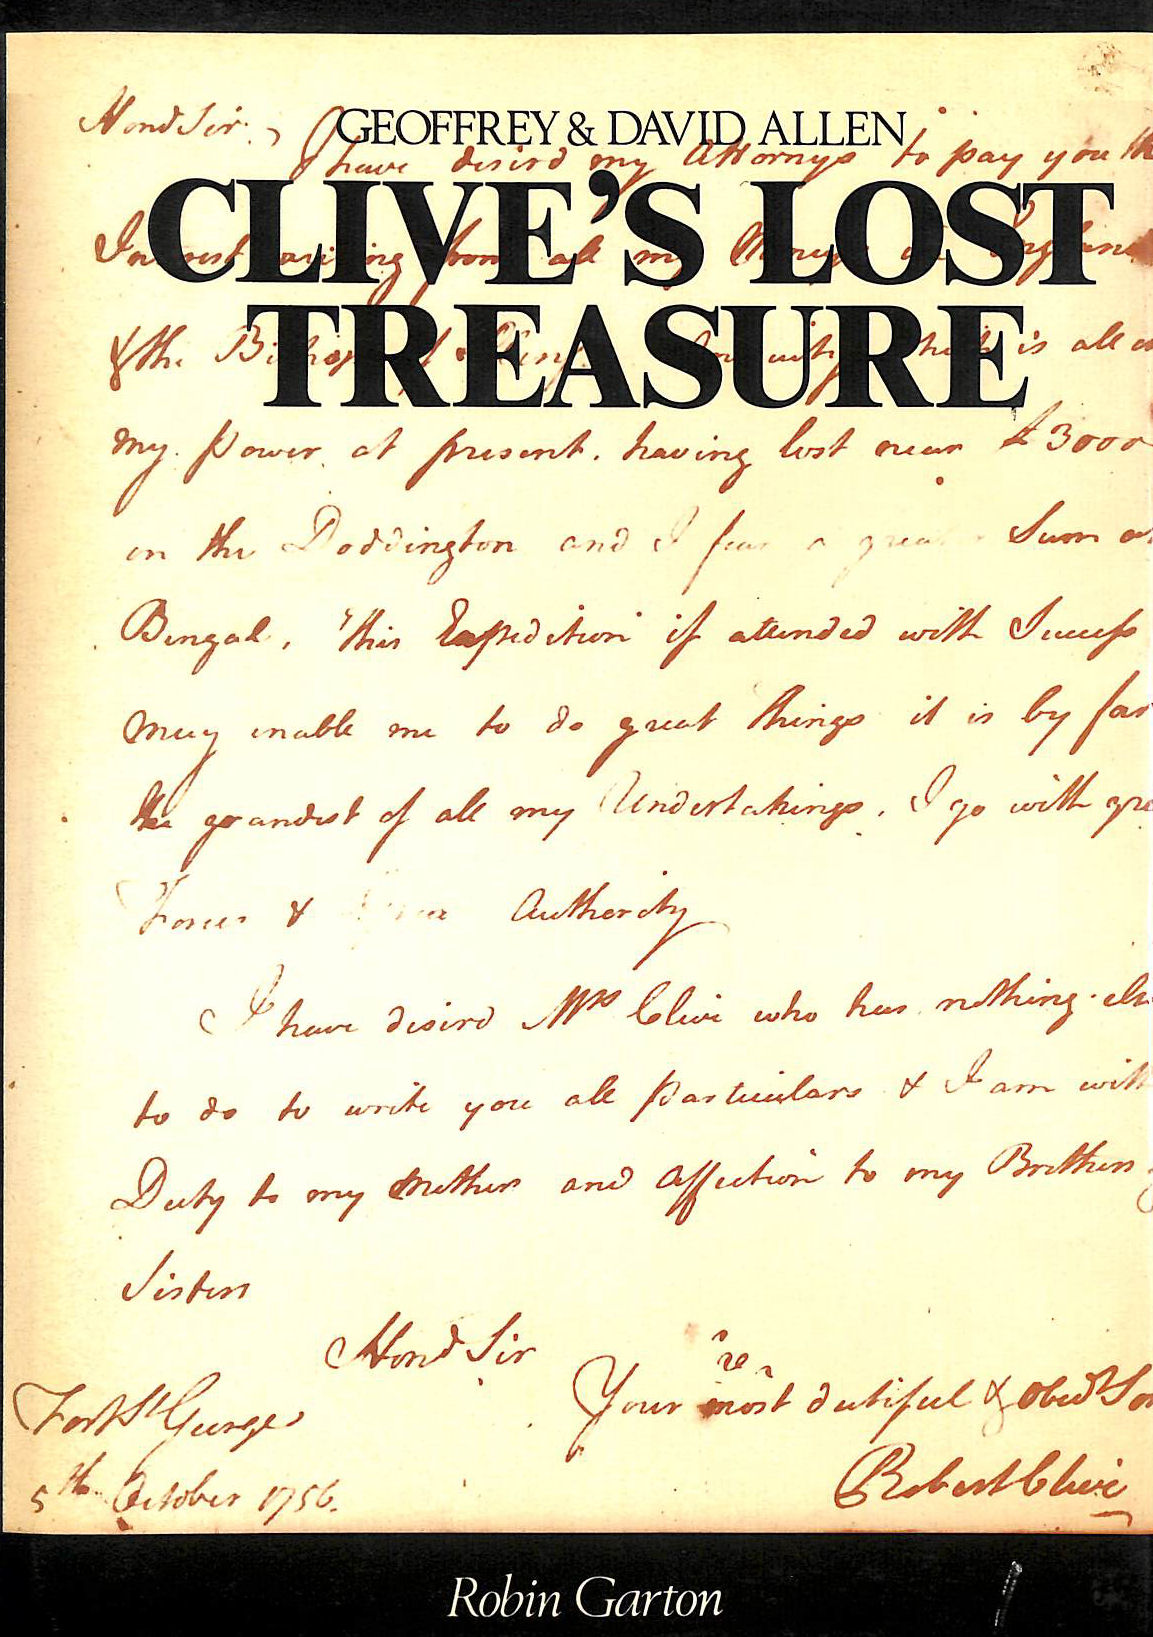 GEOFFREY & DAVID ALLEN
CLIVE'S LOST
TREASURE
Hond Sir,
I have desird my Attorneys to pay you the
Interest arising from all my Money in England
& the Bishop of which is all in
my Power at present, having lost near £3000
in the Doddington and I fear a greater Sum at
Bengal, this Expedition if attended with Success
may enable me to do great things it is by far
the grandest of all my Undertakings, I go with great
Forces & Authority
I have desird Mrs Clive who has nothing else
to do to write you all Particulars & I am with
Duty to my Mother and Affection to my Brothers &
Sisters
Hond Sir
Your most dutiful & Obedt Son
Robert Clive
Fort St George
5th October 1756.
Robin Garton